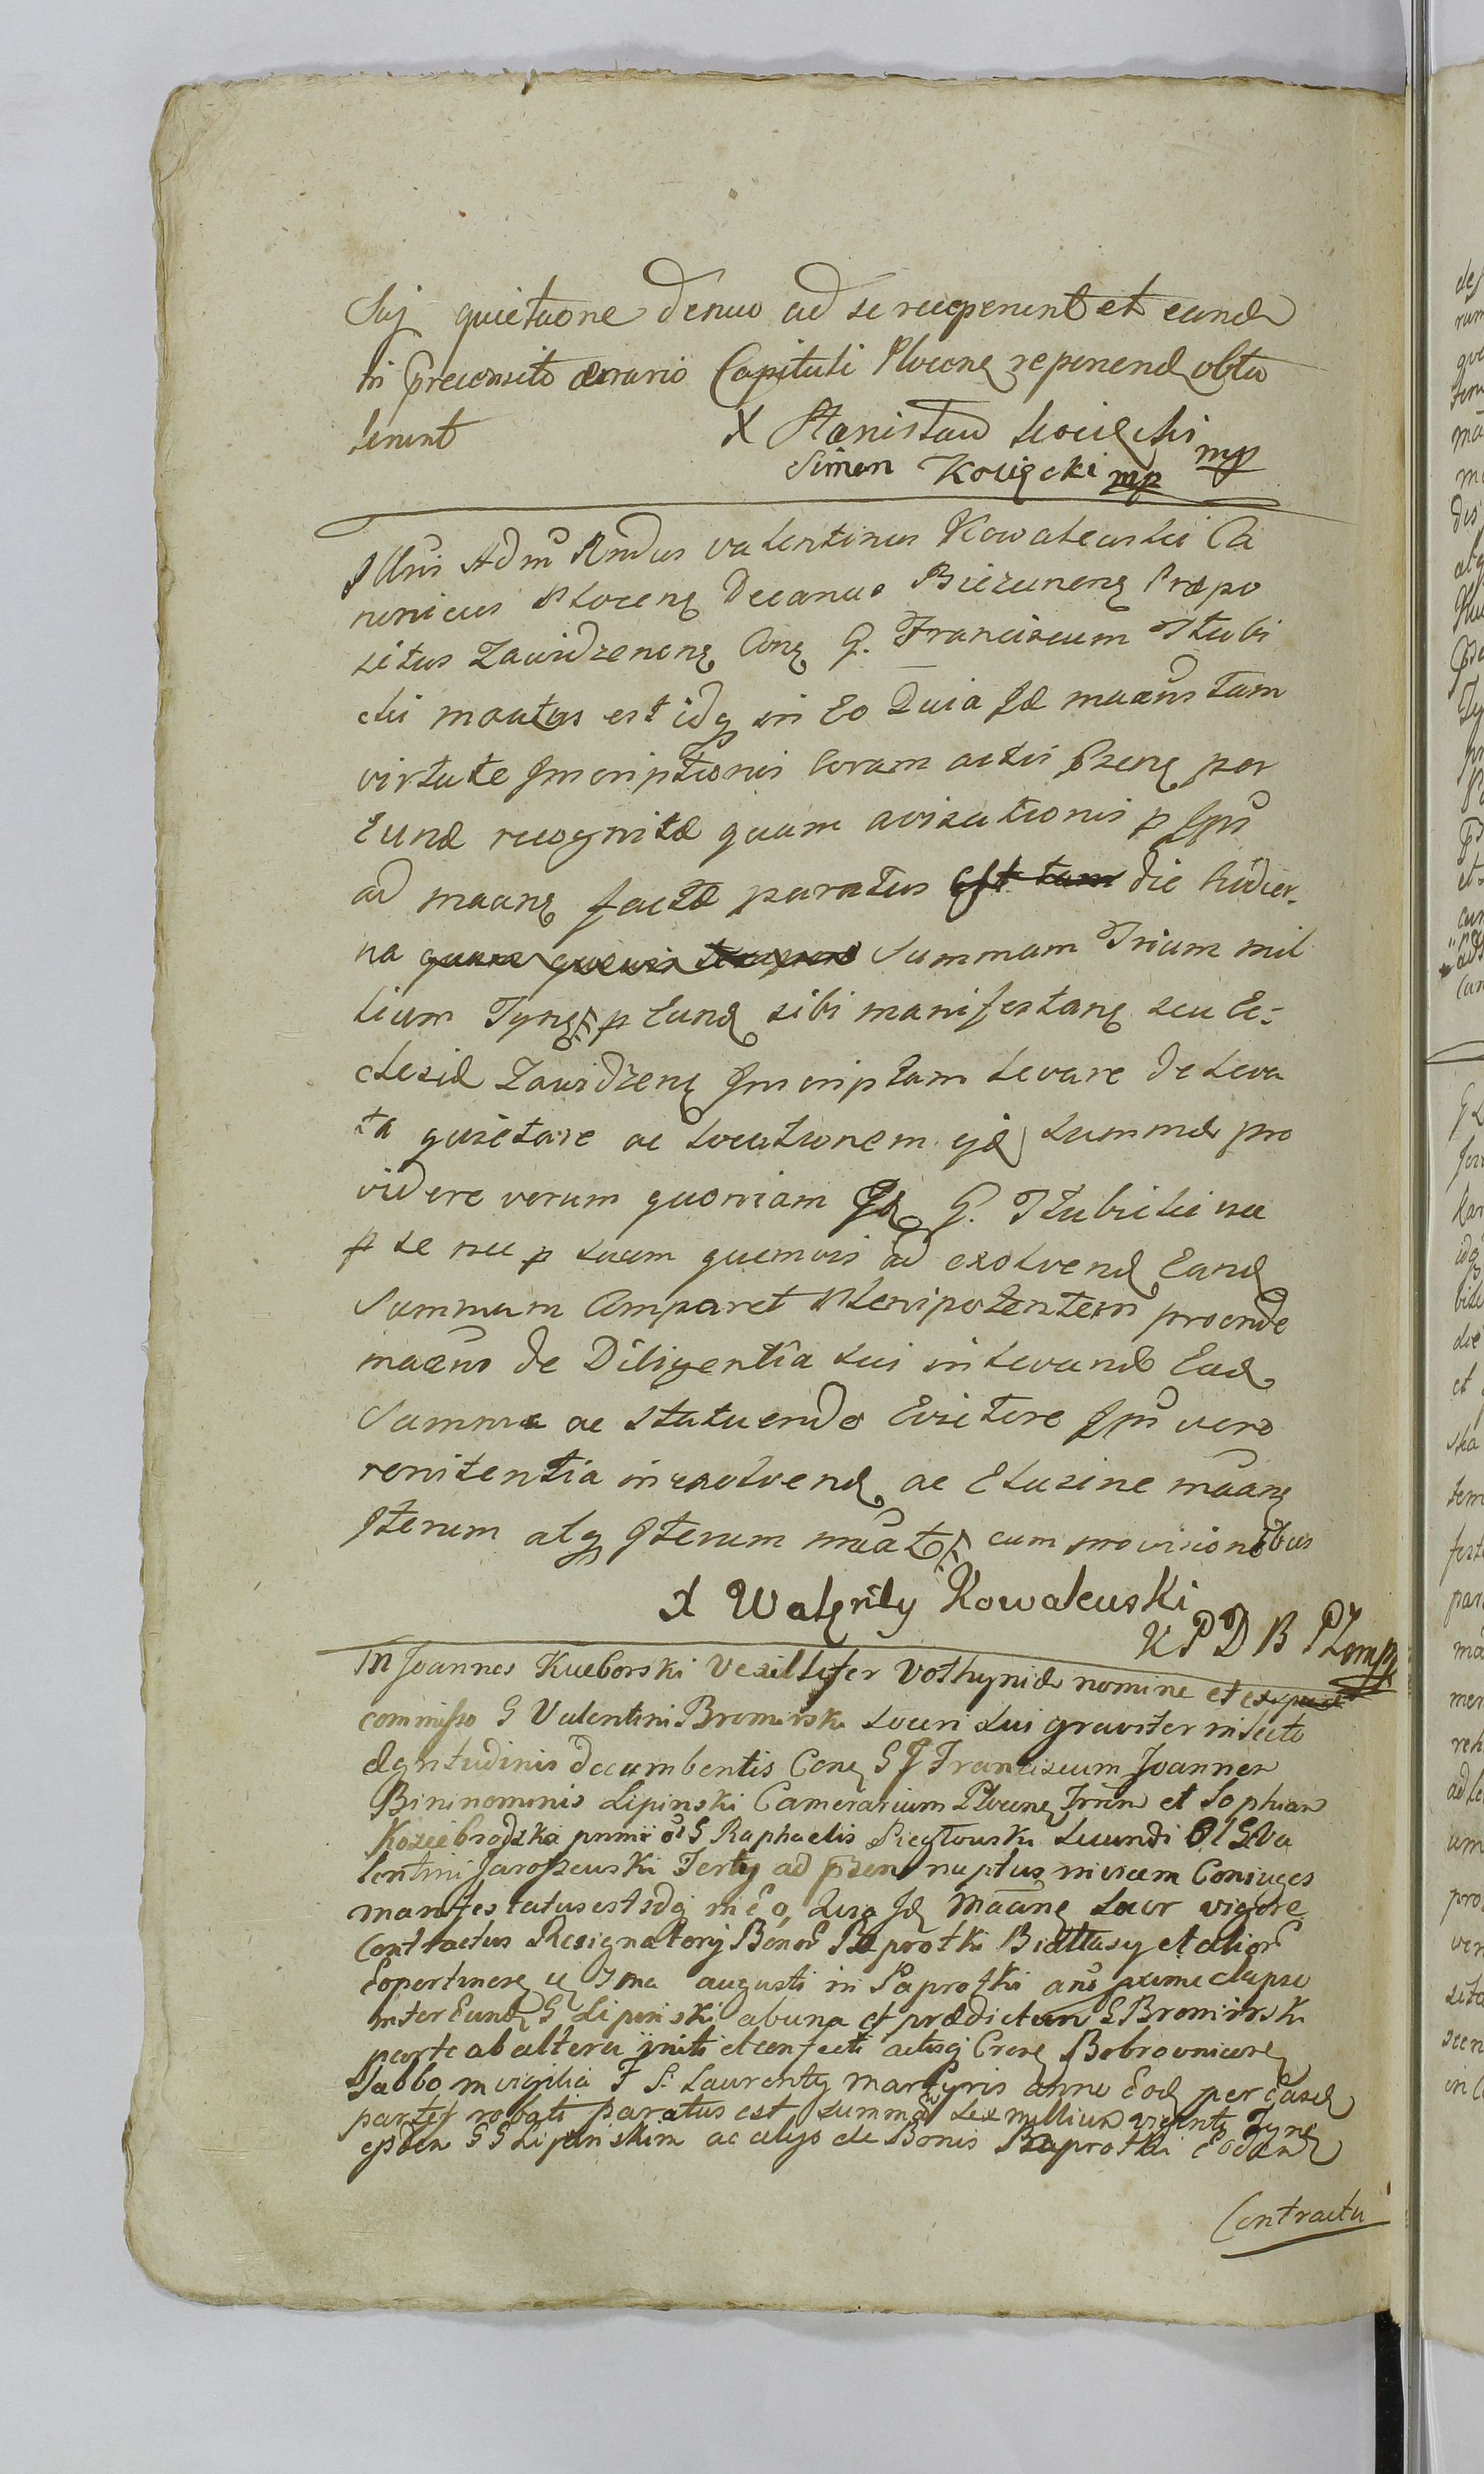 Suj quietaone denuo ad se receperunt et eand
in precensito ærario Capituli Plocens reponend obtu
lerunt
X Stanisław Kocięcki mp
Simon Kocięcki mp
Illris Adm Rndus Valentinus Kowalewski Ca
nonicus Plocens Decanus Biezunens Præpo
situs Zawidzenens Cons G. Franciscum Słubi
cki mantus est idq in Eo Quia Id maans tam
virtute Inscriptionis Coram actis pzens per
Eund recognitæ quam avisationis p Ipm
ad maans factæ paratus est tam die hodier-
na summam Trium mil
lium Tynf p Eund sibi manifestans seu Ec-
clesiæ Zawidzens Inscriptam levare de leva
ta quietare ac locationem ejd summæ pro
videre verum quoniam Id G. Słubicki nec
p se nec p suum quemvis ad exolvend Eand
Summam Comparet Plenipotentem proende
maans de Diligentia sui in levand Ead
Summa ac statuendo Evictore Ipm vero
renitentia in exolvend ac Elusine maans
Iterum atq Iterum maat cum provisionibus
X Walęnty Kowalewski
K P D B P Z mp
M Joannes Kucborski Vexillifer Volhyniæ nomine et ex
commisso G Valentini Bromirski soceri sui graviter in lecto
ægritudinis decumbentis Cons G G Franciscum Joannem
Bininominis Lipinski Camerarium Plocens Irm et Sophiam
Koziebrodzka primi ol G Raphaelis Piegłowski secundi Ol G Va
lentini Jaroszewski Tertij ad pzens nuptus invicem Coniuges
manifestatus est idq in Eo, Quia Id Maans Socer vigore
Contractus Resignatorij Bonor Paprotki Białłasy et alior
Eopertinens 1ma augusti in Paprotki ani pxime elapsi
inter Eund G Lipinski ab una et prædictum G Bromirski
parte ab altera initi et confecti actisq Crens Bobrovnicens
Sabbo in vigilia F S. Laurentij Martyris anni Eod per Easd
partes roboti paratus est summa sex millium viginti Tynf
epsdem G G Lipinskim ac alijs de Bonis Paprotki Eodem
Contractu